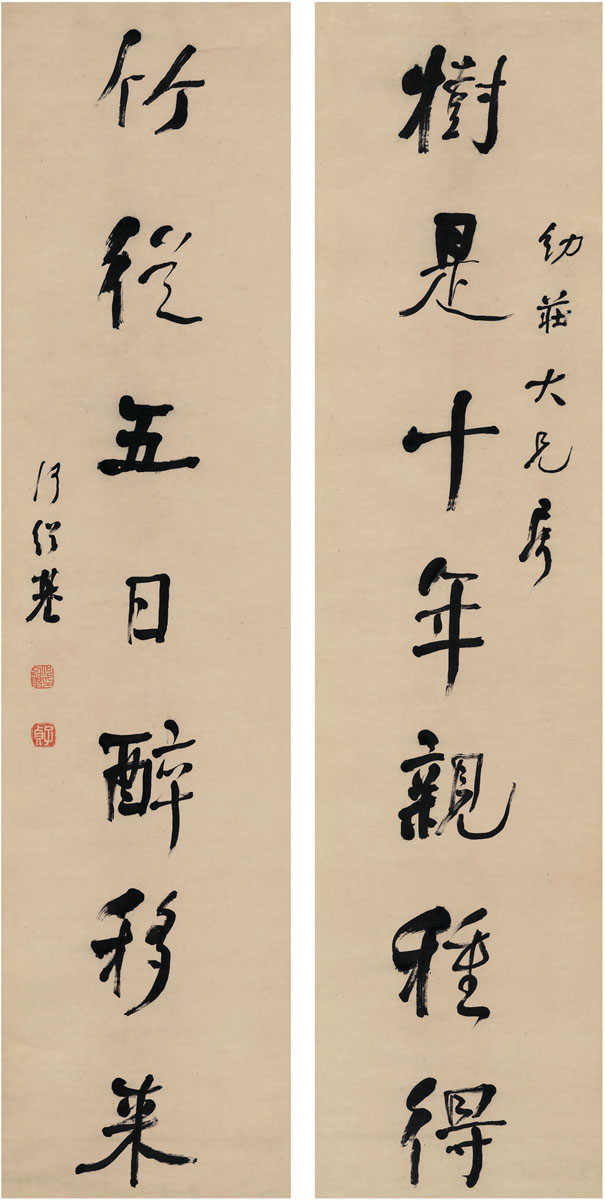 幼莊大兄屬
樹是十年親種得
竹從五日醉移來
何紹基
子貞